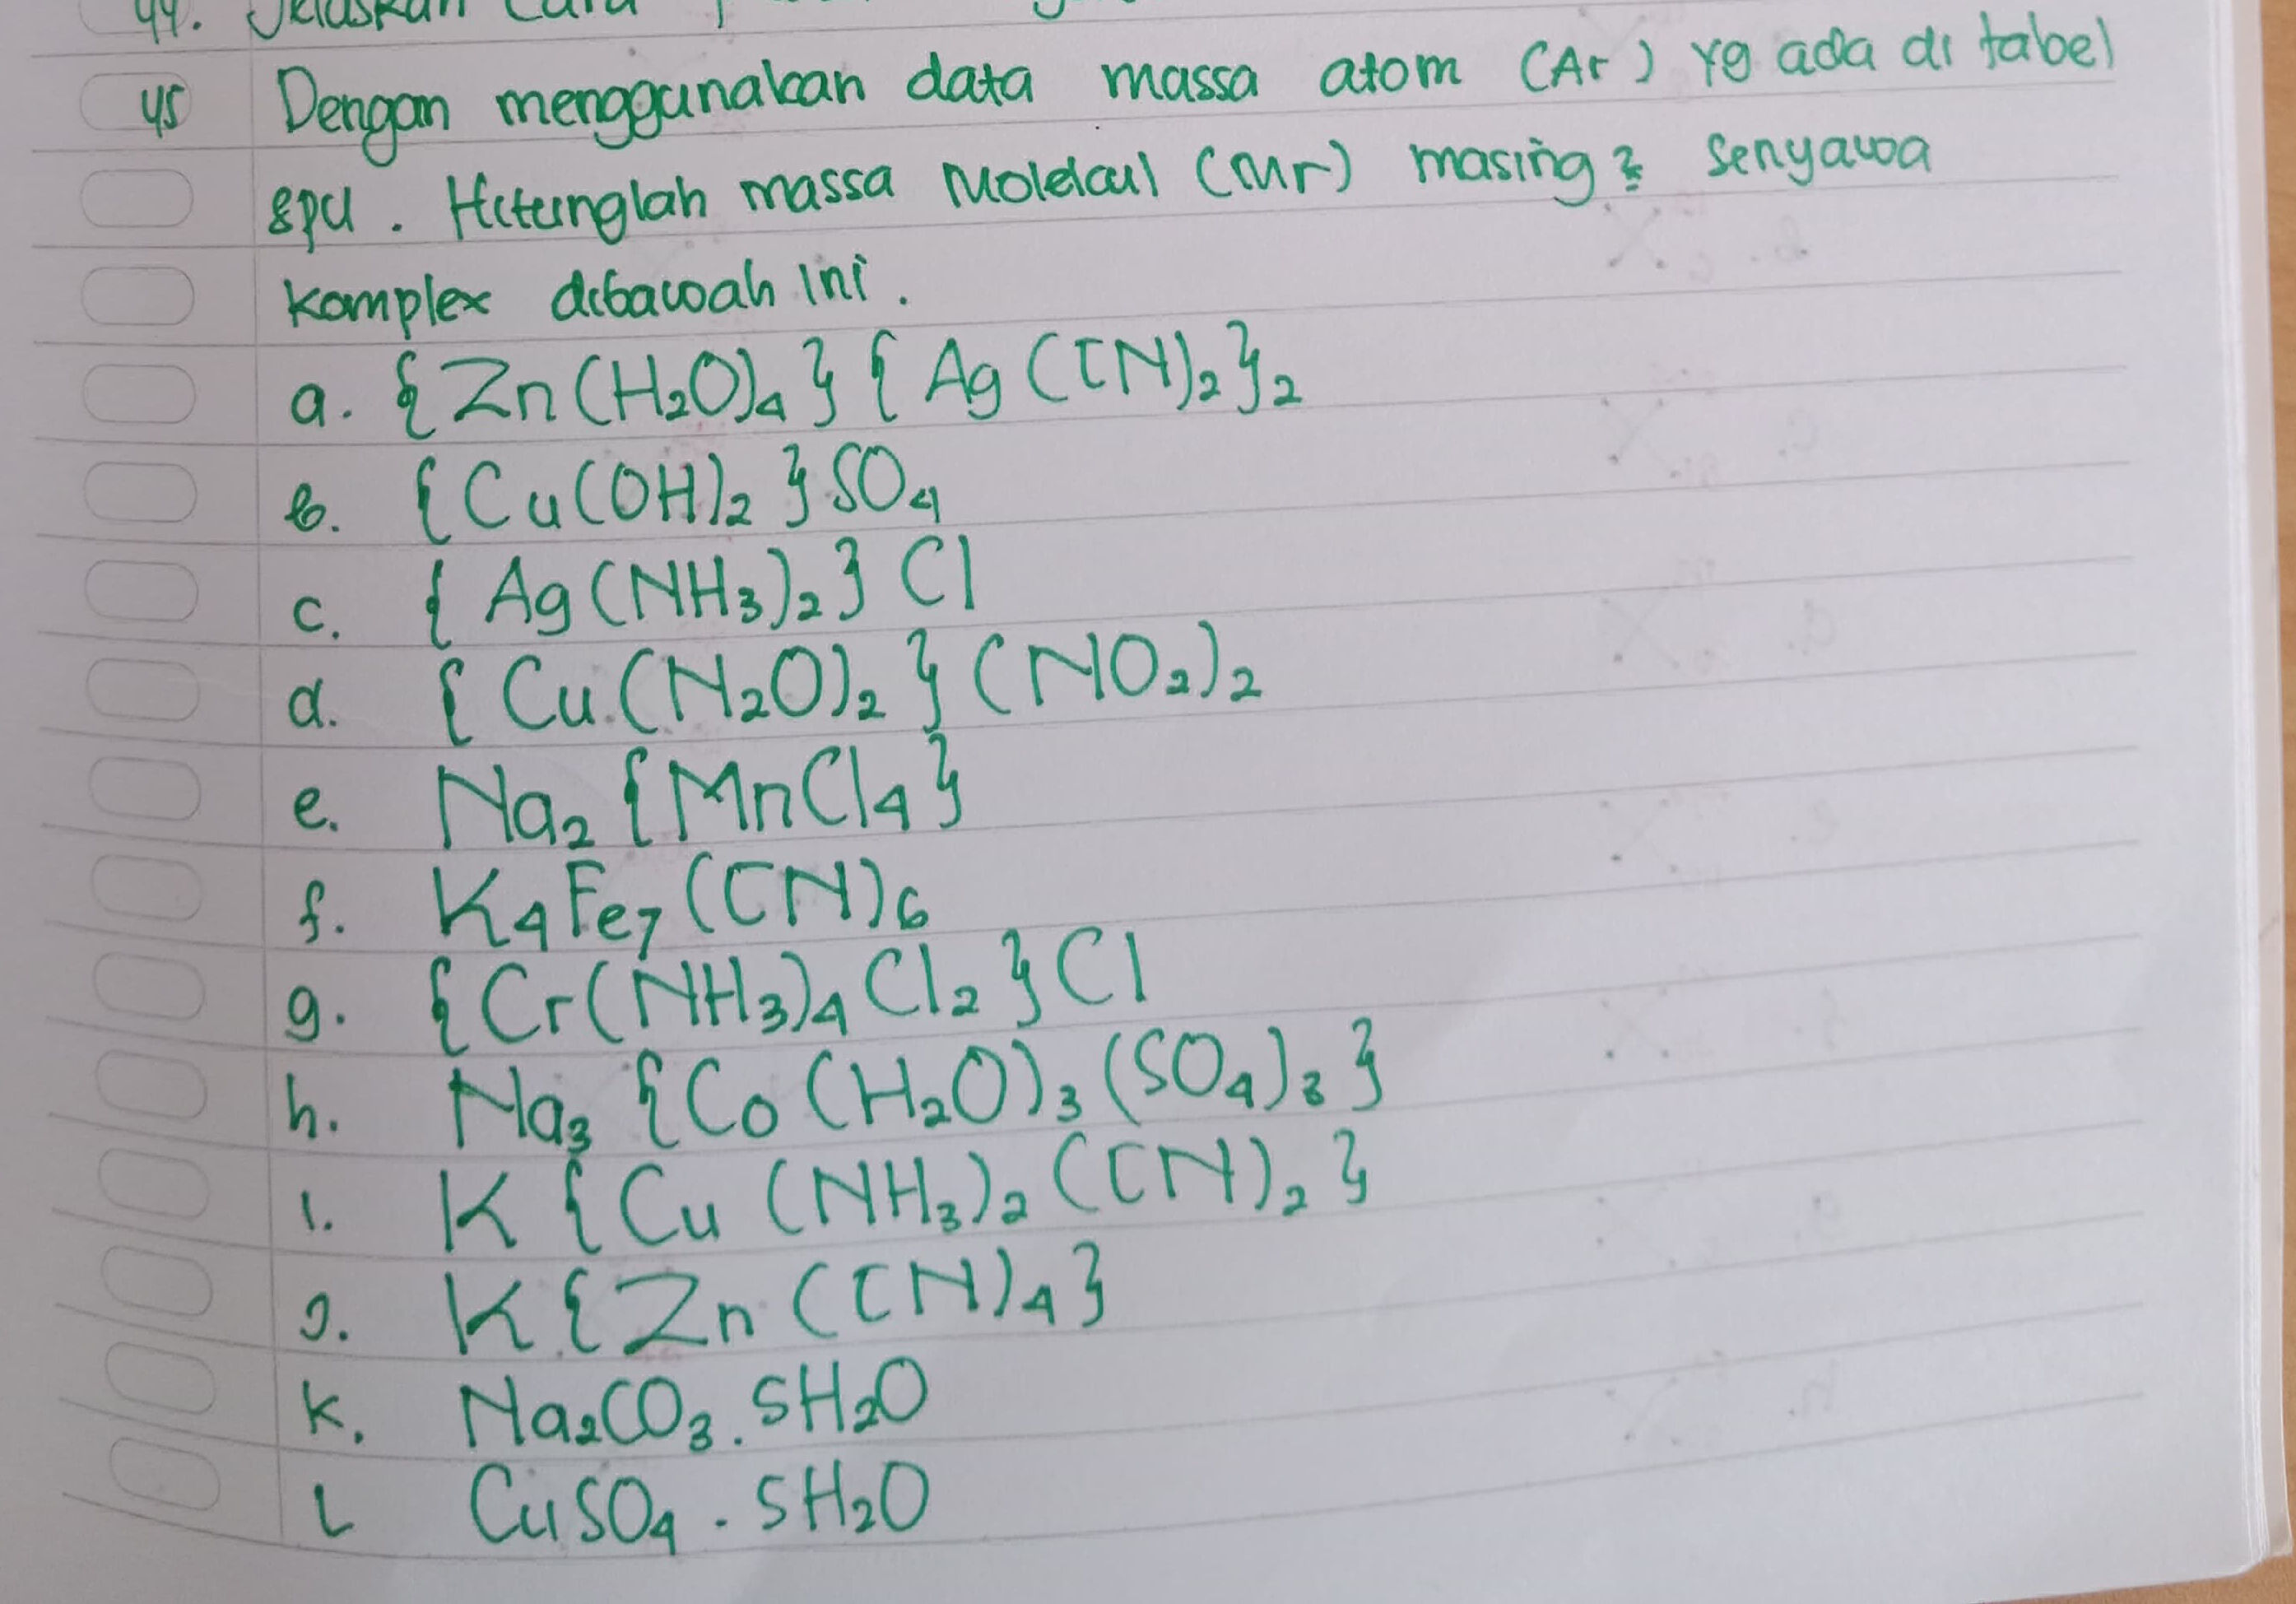 44. Jelaskan cara
45 Dengan menggunakan data massa atom (Ar) yg ada di tabel
spu. Hitunglah massa Molekul (Mr) masing2 senyawa
Komplex dibawah ini.
a. {Zn(H₂O)₄}{Ag(CN)₂}₂
b. {Cu(OH)₂}SO₄
c. {Ag(NH₃)₂}Cl
d. {Cu(N₂O)₂}(NO₂)₂
e. Na₂{MnCl₄}
f. K₄Fe₇(CN)₆
g. {Cr(NH₃)₄Cl₂}Cl
h. Na₃{Co(H₂O)₃(SO₄)₃}
i. K{Cu(NH₃)₂(CN)₂}
j. K{Zn(CN)₄}
k. Na₂CO₃.5H₂O
L CuSO₄.5H₂O